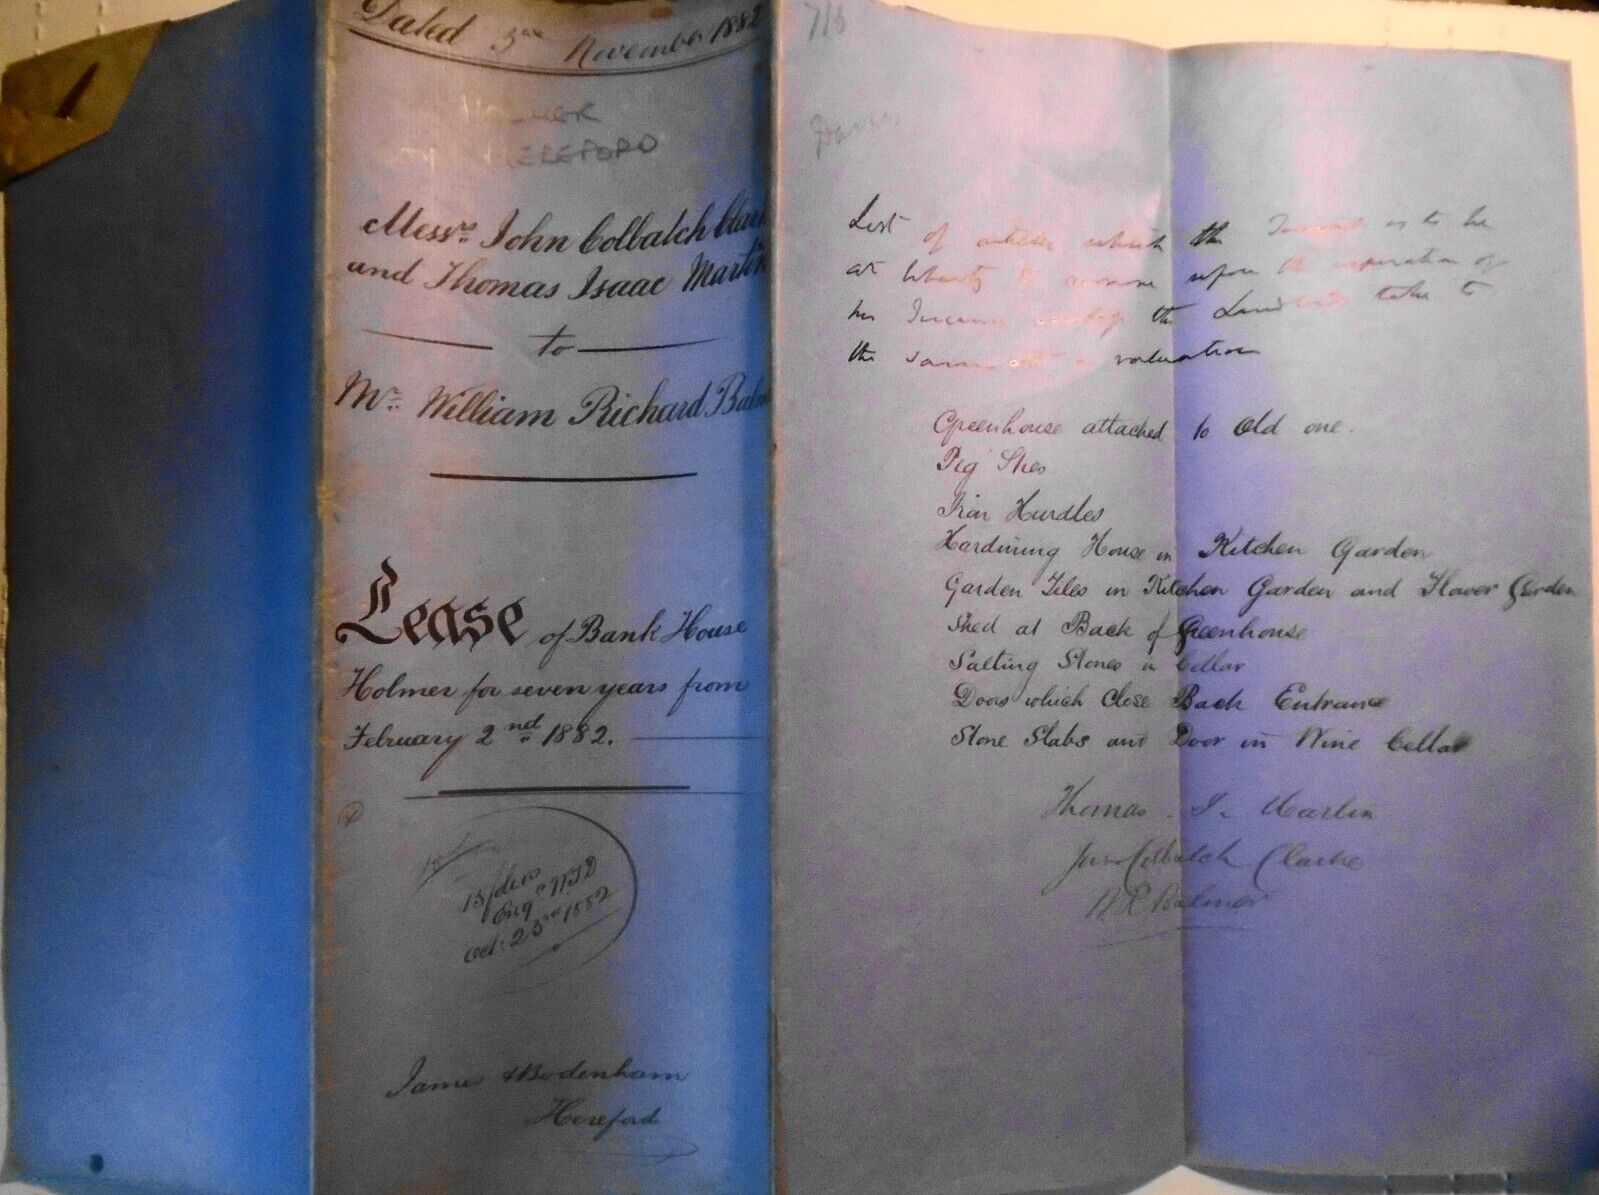 Dated 3rd November 1882
HEREFORD
Messrs. John Colbatch Clark
and Thomas Isaac Martin
to
Mr. William Richard
Lease of Bank House
Holmer for seven years from
February 2nd 1882.
15/
Eng
Oct: 23rd 1882
James & Bodenham
Hereford
716
List of articles which the Tenant is to be
at liberty to remove upon the expiration of
his Tenancy the take to
the same at a valuation
Greenhouse attached to Old one.
Pig Sties
Iron Hurdles
Hardining House in Kitchen Garden
Garden Tiles in Kitchen Garden and Flower Garden
Shed at Back of Greenhouse
Salting Stones in Cellar
Doors which Close Back Entrance
Stone Slabs and Door in Wine Cellar
Thomas I. Martin
Jno. Colbatch Clarke
W R Bulmer